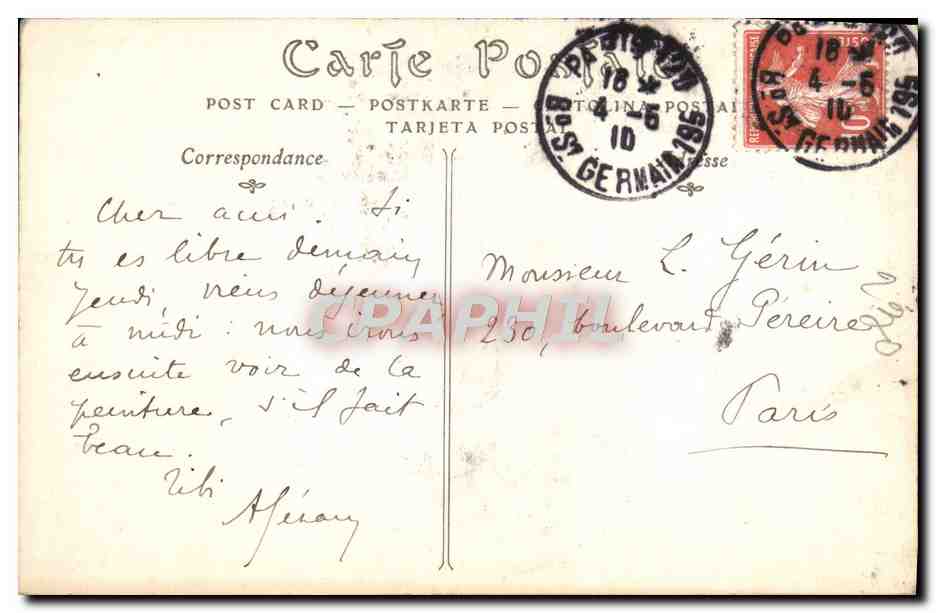 Carte Postale
POST CARD — POSTKARTE — CARTOLINA POSTALE
TARJETA POSTAL
Correspondance
Adresse
PARIS
16 *
4 -5
10
Bd ST GERMAIN, 195
REPUBLIQUE FRANÇAISE
POSTES
10
16 *
4 -5
10
Bd ST GERMAIN, 195
Cher ami. Si
tu es libre demain
jeudi, viens déjeuner
à midi : nous irons
ensuite voir de la
peinture, s'il fait
beau.
Tibi
Monsieur L. Gérin
230, boulevard Péreire
Paris
CPAPHIL